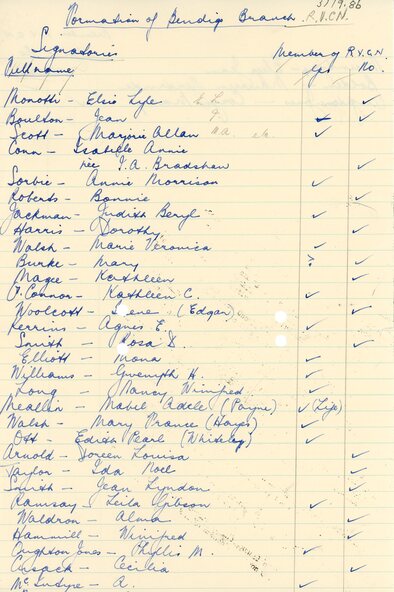 Formation of Bendigo Branch R.V.C.N.
3/19.86
Signatories Member of R.V.C.N.
Full name Yes No.
Monotti - Elsie Lyle ✓
Boulton - Jean ✓ ✓
Scott - Marjorie Allan ✓
Conn - Isabelle Annie
nee I.A. Bradshaw ✓
Sorbie - Annie Morrison ✓
Roberts - Bonnie ✓
Jackman - Judith Beryl ✓
Harris - Dorothy ✓
Walsh - Marie Veronica ✓
Burke - Mary ? ✓
Magee - Kathleen ✓
O'Connor - Kathleen C. ✓
Woolcott - Irene (Edgar) ✓
Kerrins - Agnes E. ✓
Smith - Rosa D. ✓
Elliott - Mona ✓
Williams - Gwenyth H. ✓
Long - Nancy Winifred ✓
Meallin - Mabel Adele (Payne) ✓ (Life)
Walsh - Mary France (Hayes) ✓
Ott - Edith Pearl (Whiteley) ✓
Arnold - Doreen Louisa ✓
Taylor - Ida Noel ✓
Smith - Jean Lyndon ✓
Ramsay - Leila Gibson ✓
Waldron - Alma ✓
Hammill - Winifred ✓
Oughton Jones - Phyllis M. ✓
Cusack - Cecilia ✓
McIntyre - A. ✓